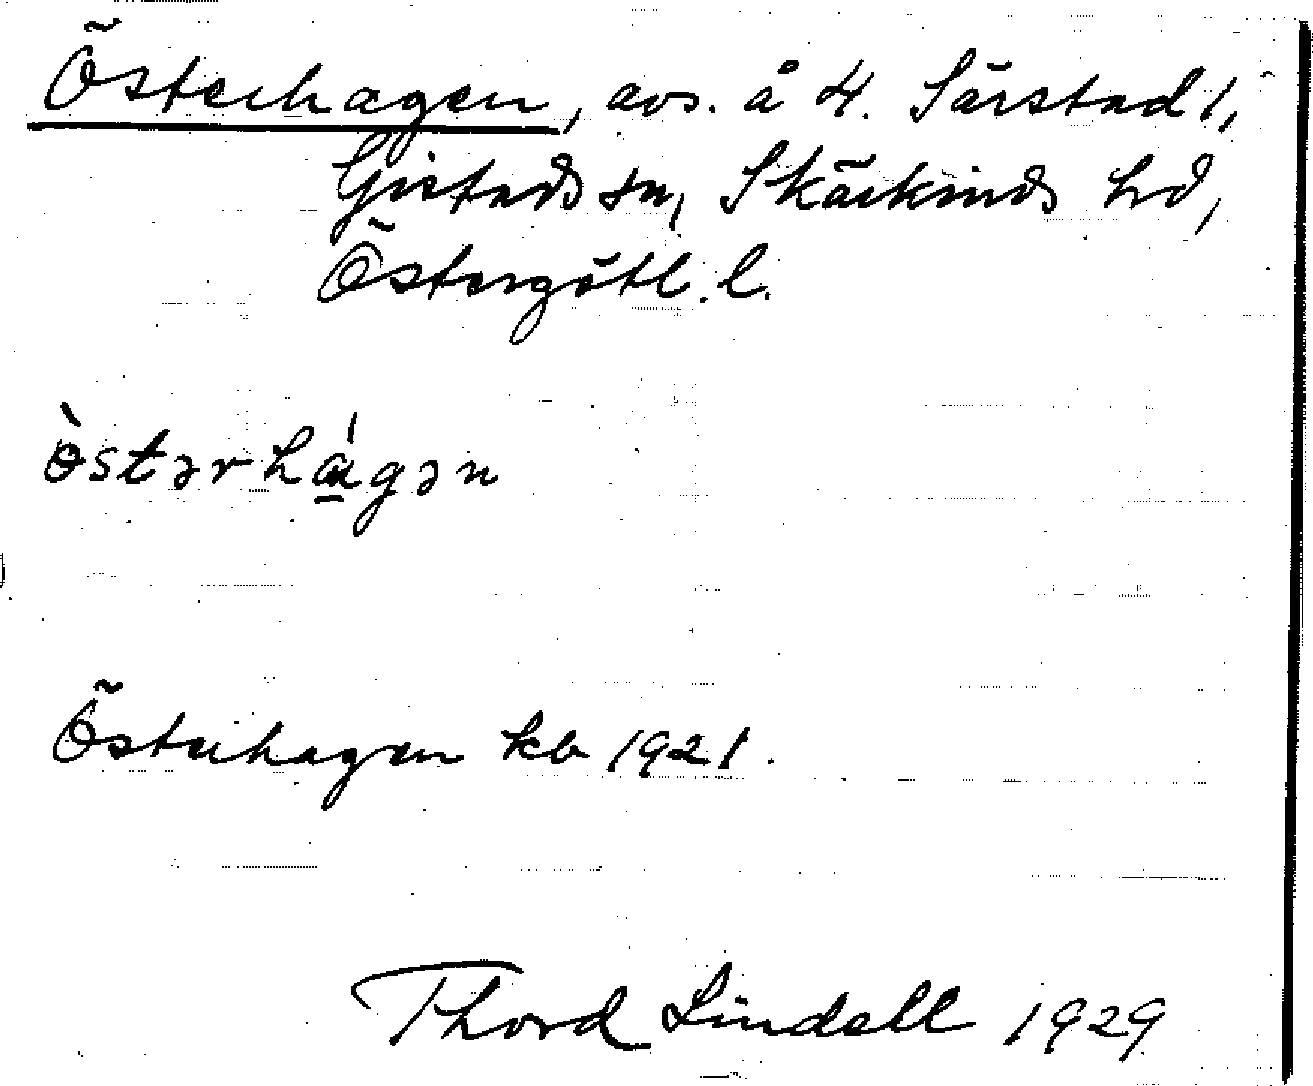 Österhagen, avs. å 4. Särstad 1,
Gistads sn, Skärkinds hd,
Östergötl. l.
ὸstərhá̱gən
Österhagen kb 1921.
Thord Lindell 1929